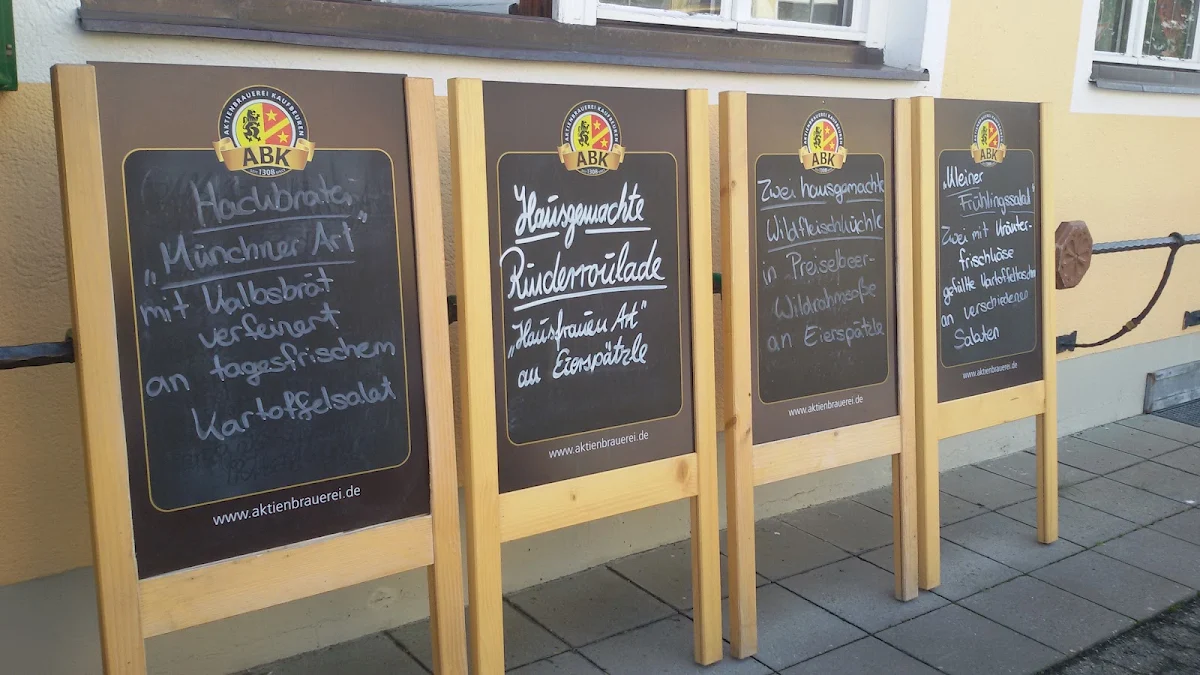 AKTIENBRAUEREI KAUFBEUREN
ABK
SEIT 1308
Hackbraten
„Münchner Art"
mit Kalbsbrät
verfeinert
an tagesfrischem
Kartoffelsalat
www.aktienbrauerei.de
AKTIENBRAUEREI KAUFBEUREN
ABK
SEIT 1308
Hausgemachte
Rinderroulade
„Hausfrauen Art"
an Eierspätzle
www.aktienbrauerei.de
ABK
Zwei hausgemachte
Wildfleischküchle
in Preiselbeer-
Wildrahmsoße
an Eierspätzle
www.aktienbrauerei.de
ABK
„Kleiner
Frühlingssalat"
Zwei mit Kräuter-
frischkäse
gefüllte Kartoffeltaschen
an verschiedenen
Salaten
www.aktienbrauerei.de